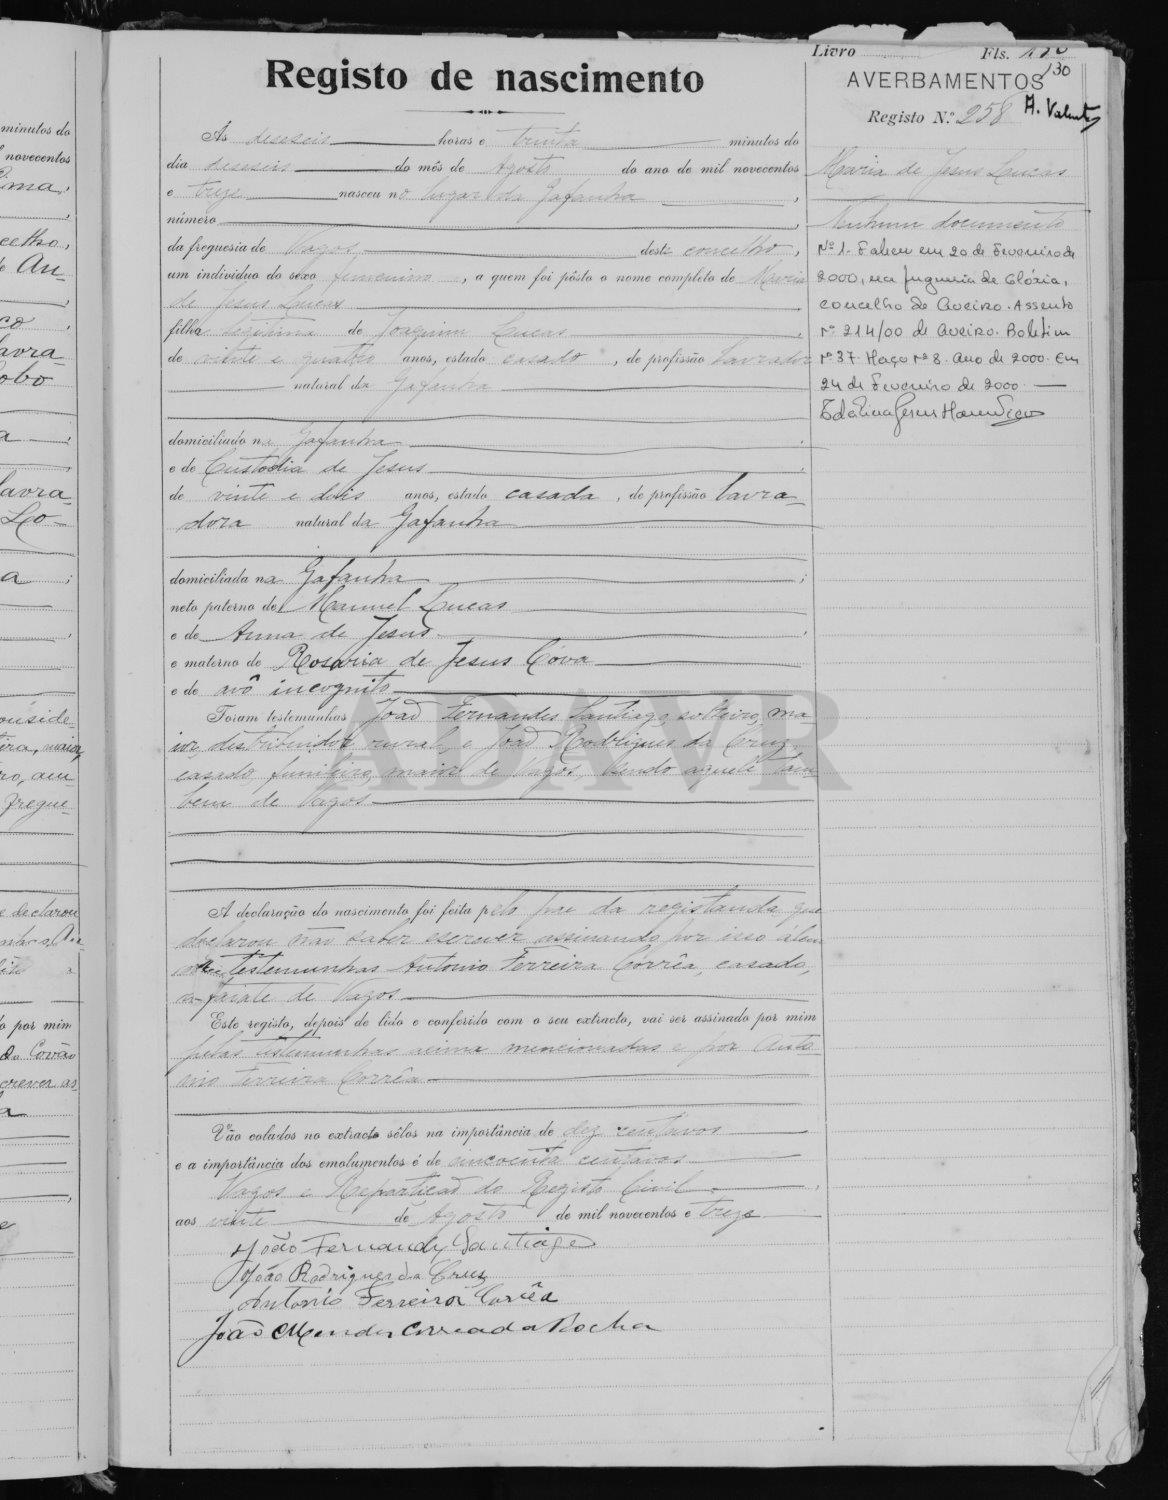 Livro Fls. 130
Registo de nascimento
AVERBAMENTOS
Registo N.º 258
Às deseseis horas e trinta minutos do
dia deseseis do mês de Agosto do ano de mil novecentos
e treze nasceu no lugar da Gafanha,
número
da freguesia de Vagos deste concelho,
um individuo do sexo femenino, a quem foi pôsto o nome completo de Maria
de Jesus Lucas
filha legitima de Joaquim Lucas
de vinte e quatro anos, estado casado, de profissão lavrador
natural da Gafanha
domiciliado na Gafanha
e de Custodia de Jesus
de vinte e dois anos, estado casada, de profissão lavra-
dora natural da Gafanha
domiciliada na Gafanha;
neto paterno de Manuel Lucas
e de Anna de Jesus,
e materno de Rosaria de Jesus Cóva
e de avô incognito
Foram testemunhas João Fernandes Santiago, solteiro, ma-
ior, distribuidor rural, e João Rodrigues da Cruz,
casado, funileiro, maior de Vagos, sendo aquele tam-
bem de Vagos
A declaração do nascimento foi feita pelo pae da registanda que
declarou não saber escrever assinando por isso álem
testemunhas Antonio Ferreira Corrêa, casado,
alfaiate de Vagos
Este registo, depois de lido e conferido com o seu extracto, vai ser assinado por mim
pelas testemunhas acima mencionadas e por Anto-
nio Ferreira Corrêa
Vão colados no extracto sêlos na importância de dez centavos
e a importância dos emolumentos é de cincoenta centavos
Vagos e Repartição do Registo Civil,
aos vinte de Agosto de mil novecentos e treze
João Fernandes Santiago
João Rodrigues da Cruz
Antonio Ferreira Corrêa
João Mendes Correa da Rocha
A. Valente
Maria de Jesus Lucas
Nenhum documento
Nº 1- Faleceu em 20 de Fevereiro de
2000, na freguesia da Glória,
concelho de Aveiro. Assento
nº 214/00 de Aveiro. Boletim
nº 37. Maço nº 8. Ano de 2000. Em
24 de Fevereiro de 2000.
ADAVR
minutos do
novecentos
lavra
a
por mim